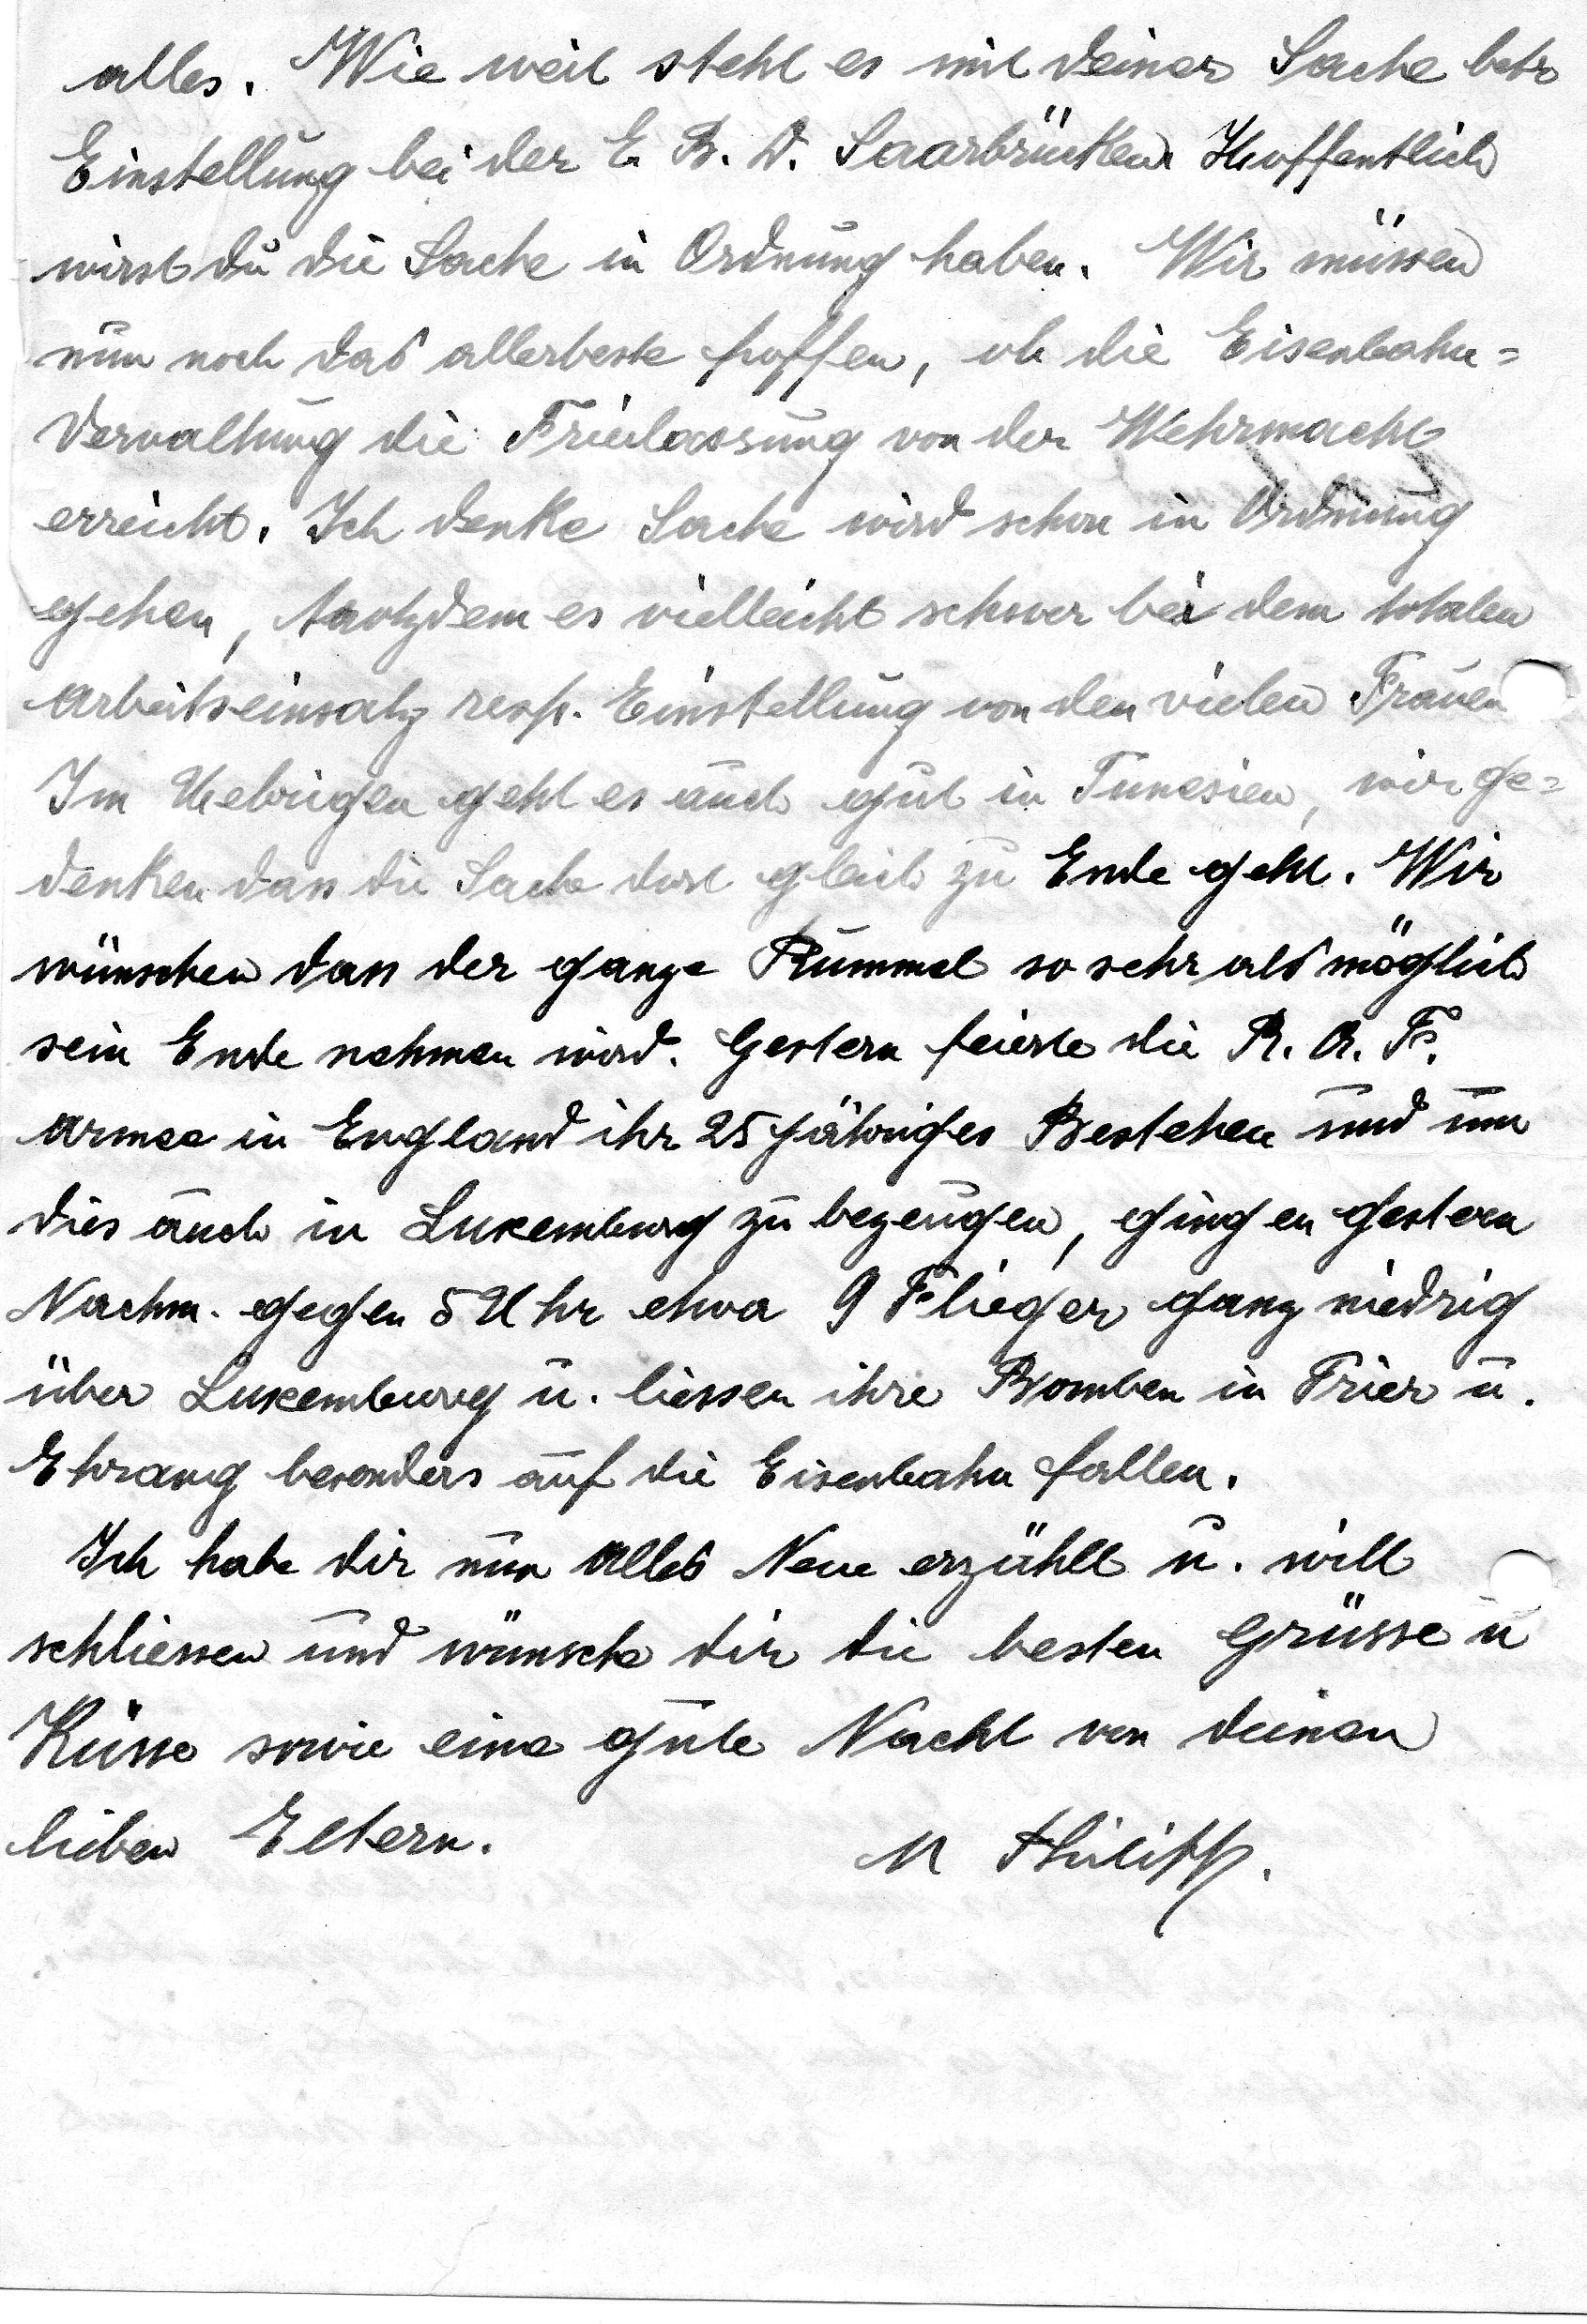 alles. Wie weit steht es mit deiner Sache betr
Einstellung bei der E. B. D. Saarbrücken Hoffentlich
wirst du die Sache in Ordnung haben. Wir müssen
nun noch das allerbeste hoffen, ob die Eisenbahn=
Verwaltung die Freilassung von der Wehrmacht
erreicht. Ich denke Sache wird schon in Ordnung
gehen, trotzdem es vielleicht schwer bei dem totalen
Arbeitseinsatz resp. Einstellung von den vielen Frauen
Im Uebrigen geht es auch gut in Tunesien, wir ge=
denken dass die Sache dort gleich zu Ende geht. Wir
wünschen dass der ganze Rummel so sehr als möglich
sein Ende nehmen wird. Gestern feierte die R. A. F.
Armee in England ihr 25 jähriges Bestehen und um
dies auch in Luxemburg zu bezeugen, gingen gestern
Nachm. gegen 5 Uhr etwa 9 Flieger ganz niedrig
über Luxemburg u. liessen ihre Bomben in Trier u.
Ehrang besonders auf die Eisenbahn fallen.
Ich habe dir nun alles Neue erzählt u. will
schliessen und wünsche dir die besten Grüsse u
Küsse sowie eine gute Nacht von deinen
lieben Eltern.